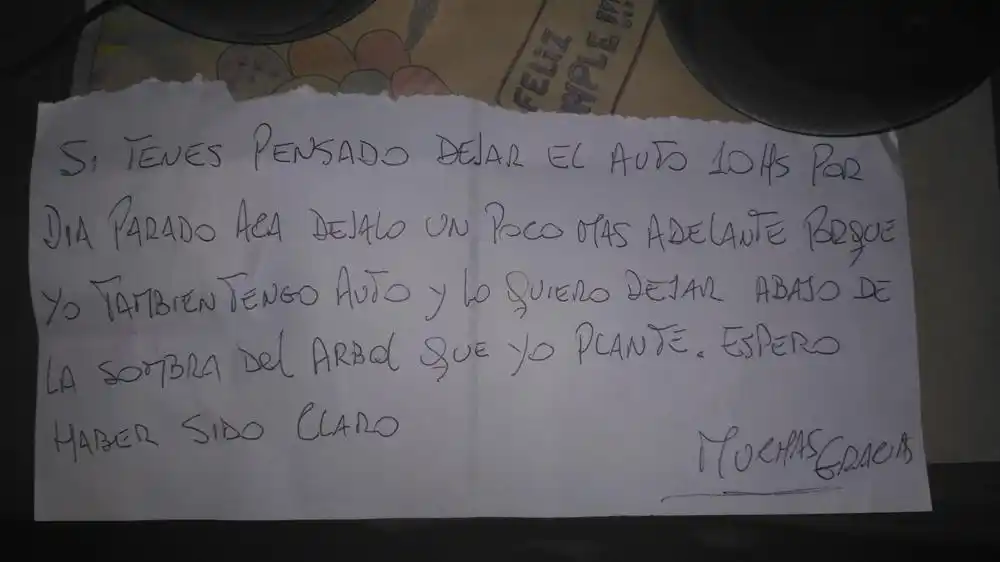 FELIZ
MPLE
SI TENES PENSADO DEJAR EL AUTO 10HS POR
DIA PARADO ACA DEJALO UN POCO MAS ADELANTE PORQUE
YO TAMBIEN TENGO AUTO y LO QUIERO DEJAR ABAJO DE
LA SOMBRA DEL ARBOL QUE YO PLANTE. ESPERO
HABER SIDO CLARO
MUCHAS GRACIAS